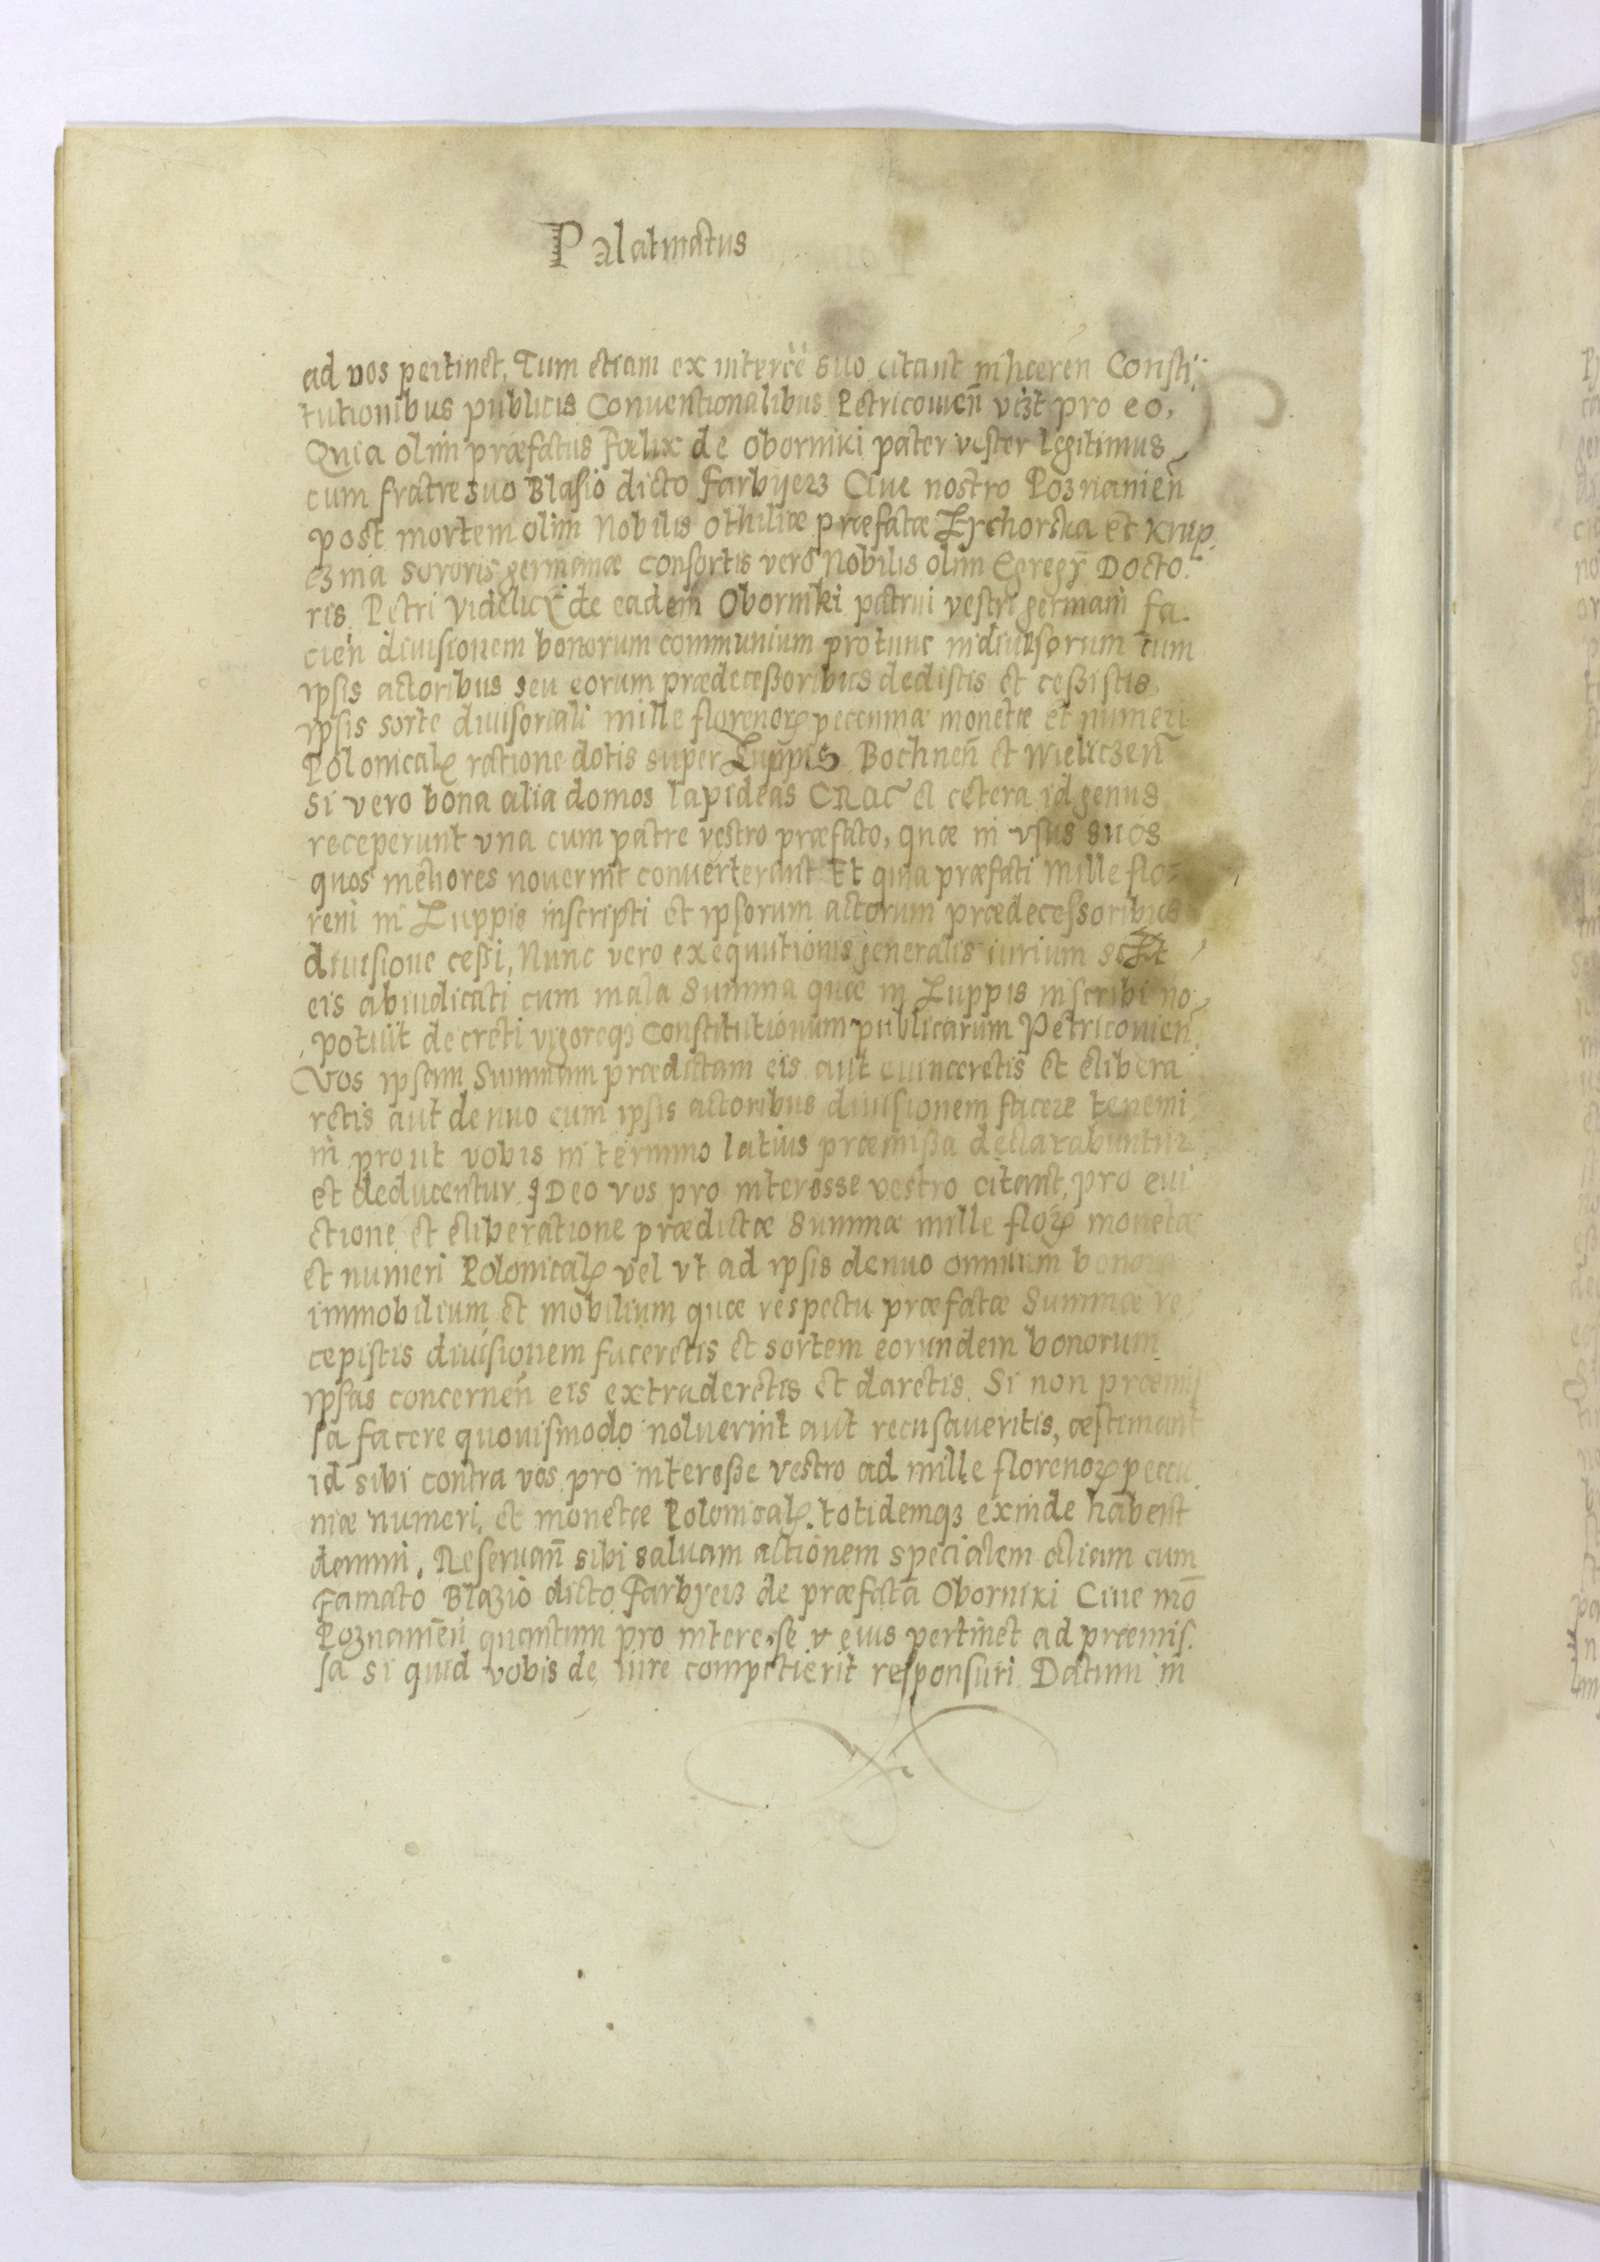 Palatinatus
ad vos pertinet, Tum etiam ex interēē suo citant inhæren̄ Consti:
tutionibus publicis Conventionalibus Petricouien̄ vcꝫt pro eo,
Quia olim præfatus Fœlix de Oborniki pater vester legitimus
cum fratre suo Blasio dicto Farbyerz Ciue nostro Poznanien̄
post mortem olim Nobilis Othiliæ præfatæ Łychorska et Krup.
czina sororis germanæ consortis vero Nobilis olim Egregÿ Docto.
ris Petri de eadem Oborniki patrui vestri germani fa.
cien̄ diuisionem bonorum communium pro tunc indiuisorum cum
ipsis actoribus seu eorum prædecessoribus dedistis et cessistis
ipsis sorte diuisoriali mille florenorꝝ pecuniæ monetæ et numeri
Polonicalꝭ ratione dotis super Zuppis Bochnen̄ et Wieliczen̄
Si vero bona alia domos lapideas CRAC et cetera id genus
receperunt vna cum patre vestro præfato, quæ in vsus suos
quos meliores nouerint conuerterunt Et quia præfati mille flo=
reni in Zuppis inscripti et ipsorum actorum prædecessoribus
diuisione cessi, Nunc vero exequutionis generalis iurium
eis abiudicati cum mala summa quæ in Zuppis inscribi no
potuit decreti vigoreqꝫ Constitutionum publicarum Petricouien̄
Vos ipsam Summam prædictam eis aut euinceretis et elibera
retis aut denuo cum ipsis actoribus diuisionem facere tenemi
ni prout vobis in termino latius præmissa declarabuntur
et deducentur IDeo vos pro interesse vestro citant, pro eui
ctione et eliberatione prædictæ Summæ mille florꝝ monetæ
et numeri Polonicalꝭ vel vt ad ipsis denuo omnium bonorum
immobilium et mobilium quæ respectu præfatæ Summæ re
cepistis diuisionem faceretis et sortem eorundem bonorum
ipsas concernen̄ eis extraderetis et daretis Si non præmis
sa facere quouismodo nolueritit aut recusaueritis, æstimant
id sibi contra vos pro interesse vestro ad mille florenorꝝ pecu
niæ numeri et monetæ Polonicalꝭ. totidemqꝫ exinde habent
damni, Reseruan̄ sibi saluam actionem specialem aliam cum
Famato Blazio dicto Farbyerz de præfata Oborniki Ciue mō
Poznanien̄ quantum pro interesse eius pertinet ad præmis.
sa si quid vobis de iure competierit responsuri Datum in